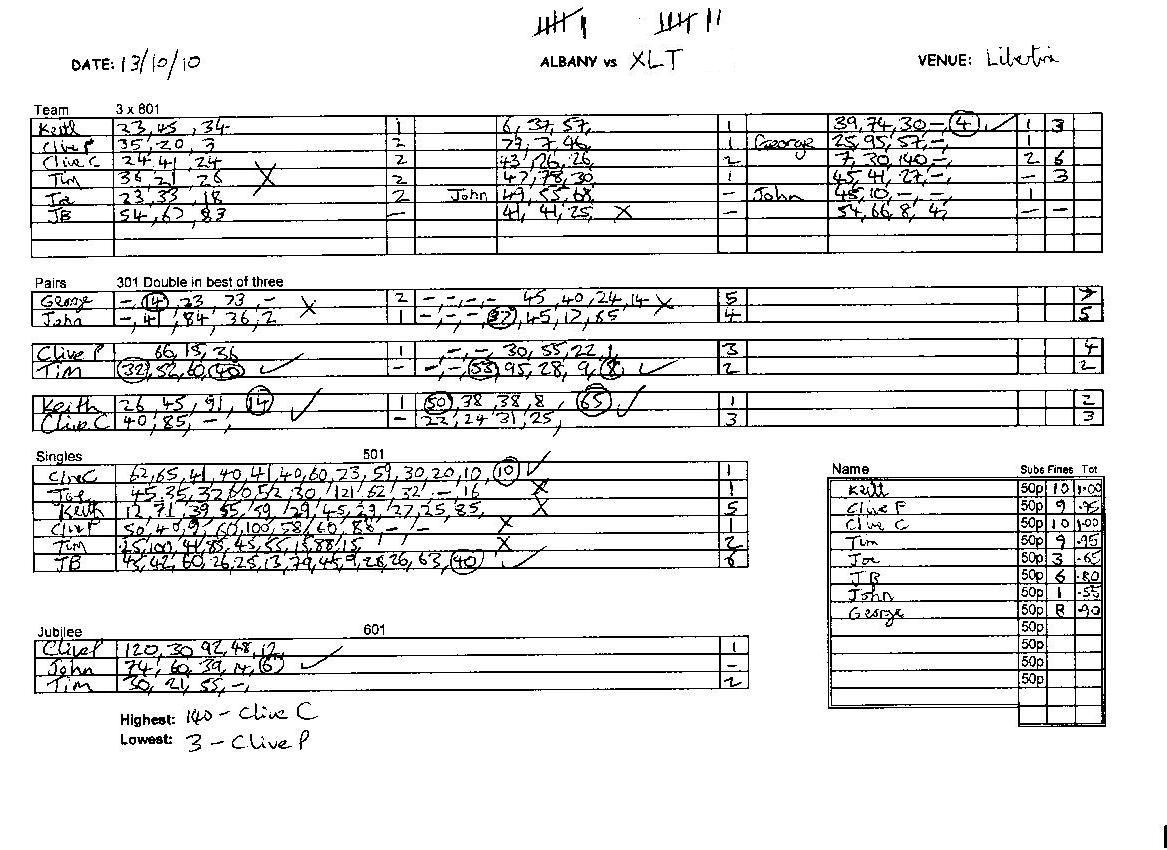 DATE: 13/10/10 ALBANY vs XLT VENUE: Libertia
Team 3 x 801
Keith 23, 45, 34 1 6, 37, 57, 1 39, 74, 30 -, 4 ✓ 1 3
Clive P 35, 20, 3 2 79, 7, 46 1 George 25, 95, 57, -, 1
Clive C 24, 41, 24 2 43, 26, 26, 2 7, 30, 140, -, 2 6
Tim 36, 21, 26 X 2 47, 78, 30 1 45, 41, 27, -, - 3
Joe 23, 33, 18 2 John 49, 55, 68, - John 45, 10, -, -, 1
JB 54, 67, 83 - 41, 41, 25, X - 54, 66, 8, 4, - -
Pairs 301 Double in best of three
George -, 14, 23, 73, - X 2 -, -, -, - 45, 40, 24, 14 X 5 7
John -, 41, 84, 36, 2 1 -, -, -, 37, 45, 12, 65 4 5
Clive P 66, 15, 36 1 -, -, - 30, 55, 22, 1 3 4
Tim 32, 52, 60, 40 ✓ - -, -, 53, 95, 28, 9, 8 ✓ 2 2
Keith 26, 45, 91, 14 ✓ 1 50, 38, 38, 8, 65 ✓ 1 2
Clive C 40, 85, -, - 22, 24, 31, 25, 3 3
Singles 501
Clive C 62, 65, 41, 40, 41, 40, 60, 23, 59, 30, 20, 10, 10 ✓ 1
Joe 45, 35, 32, 60, 52, 30, 121, 62, 32, -, 16 X 1
Keith 12, 71, 39, 55, 59, 29, 45, 23, 27, 25, 85, X 5
Clive P 50, 40, 9, 60, 100, 58, 60, 88 - - X 1
Tim 25, 100, 41, 85, 45, 55, 15, 88, 15 X 2
JB 45, 42, 60, 26, 25, 13, 79, 45, 9, 28, 26, 63, 40 ✓ 6
Name Subs Fines Tot
Keith 50p 10 1.00
Clive P 50p 9 .95
Clive C 50p 10 1.00
Tim 50p 9 .95
Joe 50p 3 .65
JB 50p 6 .80
John 50p 1 .55
George 50p 8 .90
50p
50p
50p
50p
Jubilee 601
Clive P 120, 30, 92, 48, 12, 1
John 74, 60, 39, 14, 6 ✓ -
Tim 30, 21, 55, -, 2
Highest: 140 - Clive C
Lowest: 3 - Clive P